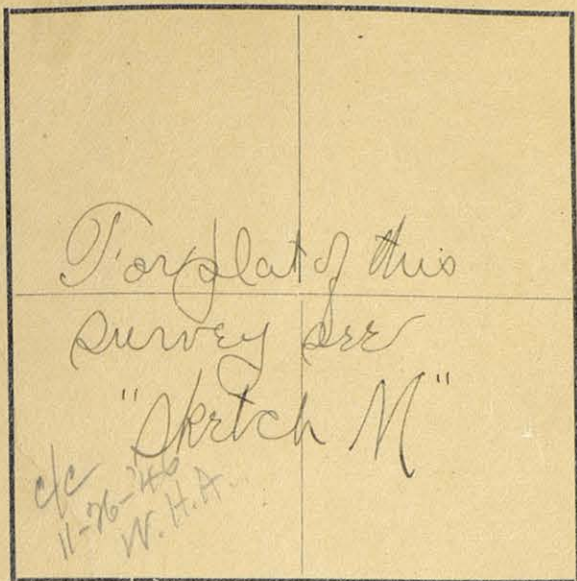 For plat of this
survey see
"Sketch M"
c/c
11-26-'46
W.H.A.